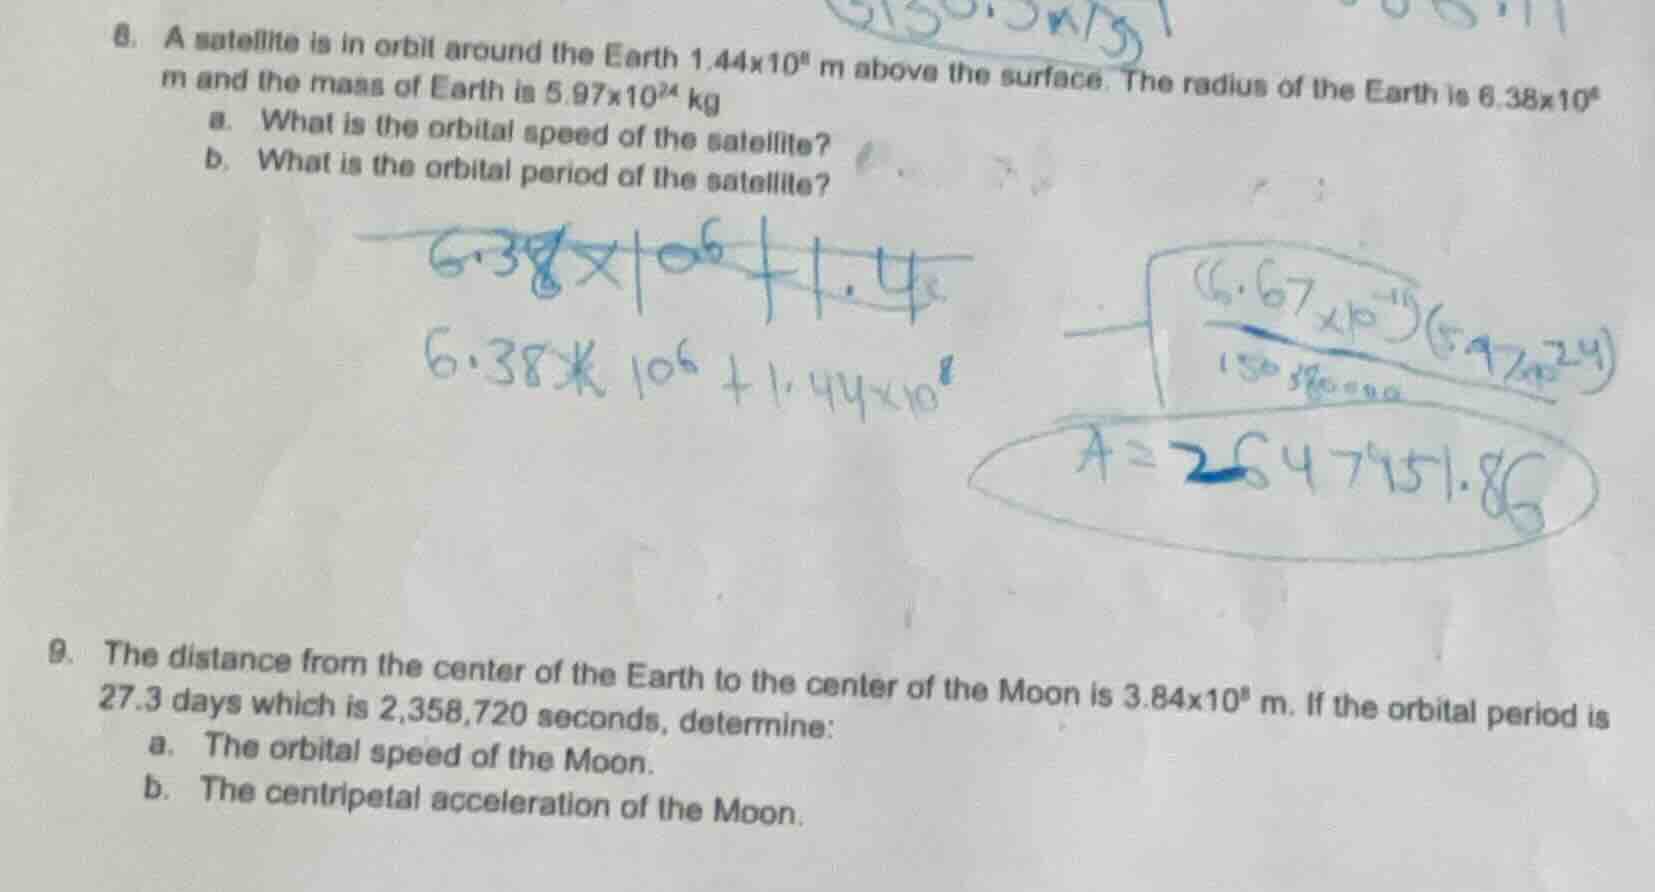 8. A satellite is in orbit around the Earth 1.44x10⁸ m above the surface. The radius of the Earth is 6.38x10⁶
m and the mass of Earth is 5.97x10²⁴ kg
a. What is the orbital speed of the satellite?
b. What is the orbital period of the satellite?
6.38x10⁶ + 1.4
6.38x 10⁶ + 1.44x10⁸
(6.67x10⁻¹¹)(5.97x10²⁴)
150380000
A = 2647951.86
9. The distance from the center of the Earth to the center of the Moon is 3.84x10⁸ m. If the orbital period is
27.3 days which is 2,358,720 seconds, determine:
a. The orbital speed of the Moon.
b. The centripetal acceleration of the Moon.